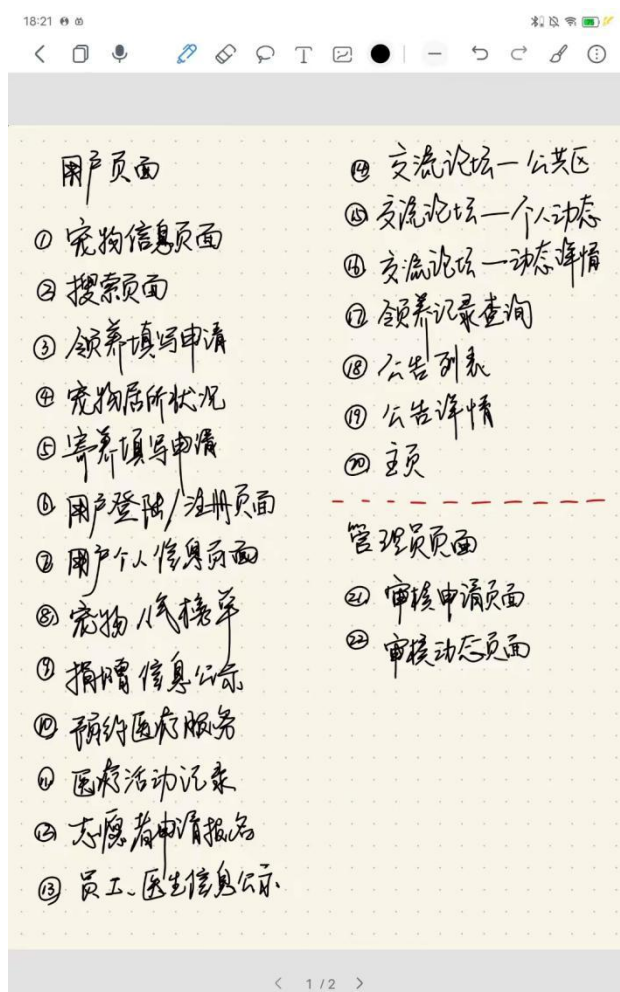 18:21
用户页面
① 宠物信息页面
② 搜索页面
③ 领养填写申请
④ 宠物居所状况
⑤ 寄养填写申请
⑥ 用户登陆/注册页面
⑦ 用户个人信息页面
⑧ 宠物人气榜单
⑨ 捐赠信息公示
⑩ 预约医疗服务
⑪ 医疗活动记录
⑫ 志愿者申请报名
⑬ 员工、医生信息公示
⑭ 交流论坛—公共区
⑮ 交流论坛—个人动态
⑯ 交流论坛—动态详情
⑰ 领养记录查询
⑱ 公告列表
⑲ 公告详情
⑳ 主页
管理员页面
㉑ 审核申请页面
㉒ 审核动态页面
1/2